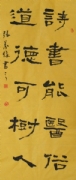 詩書能醫俗
道德可樹人